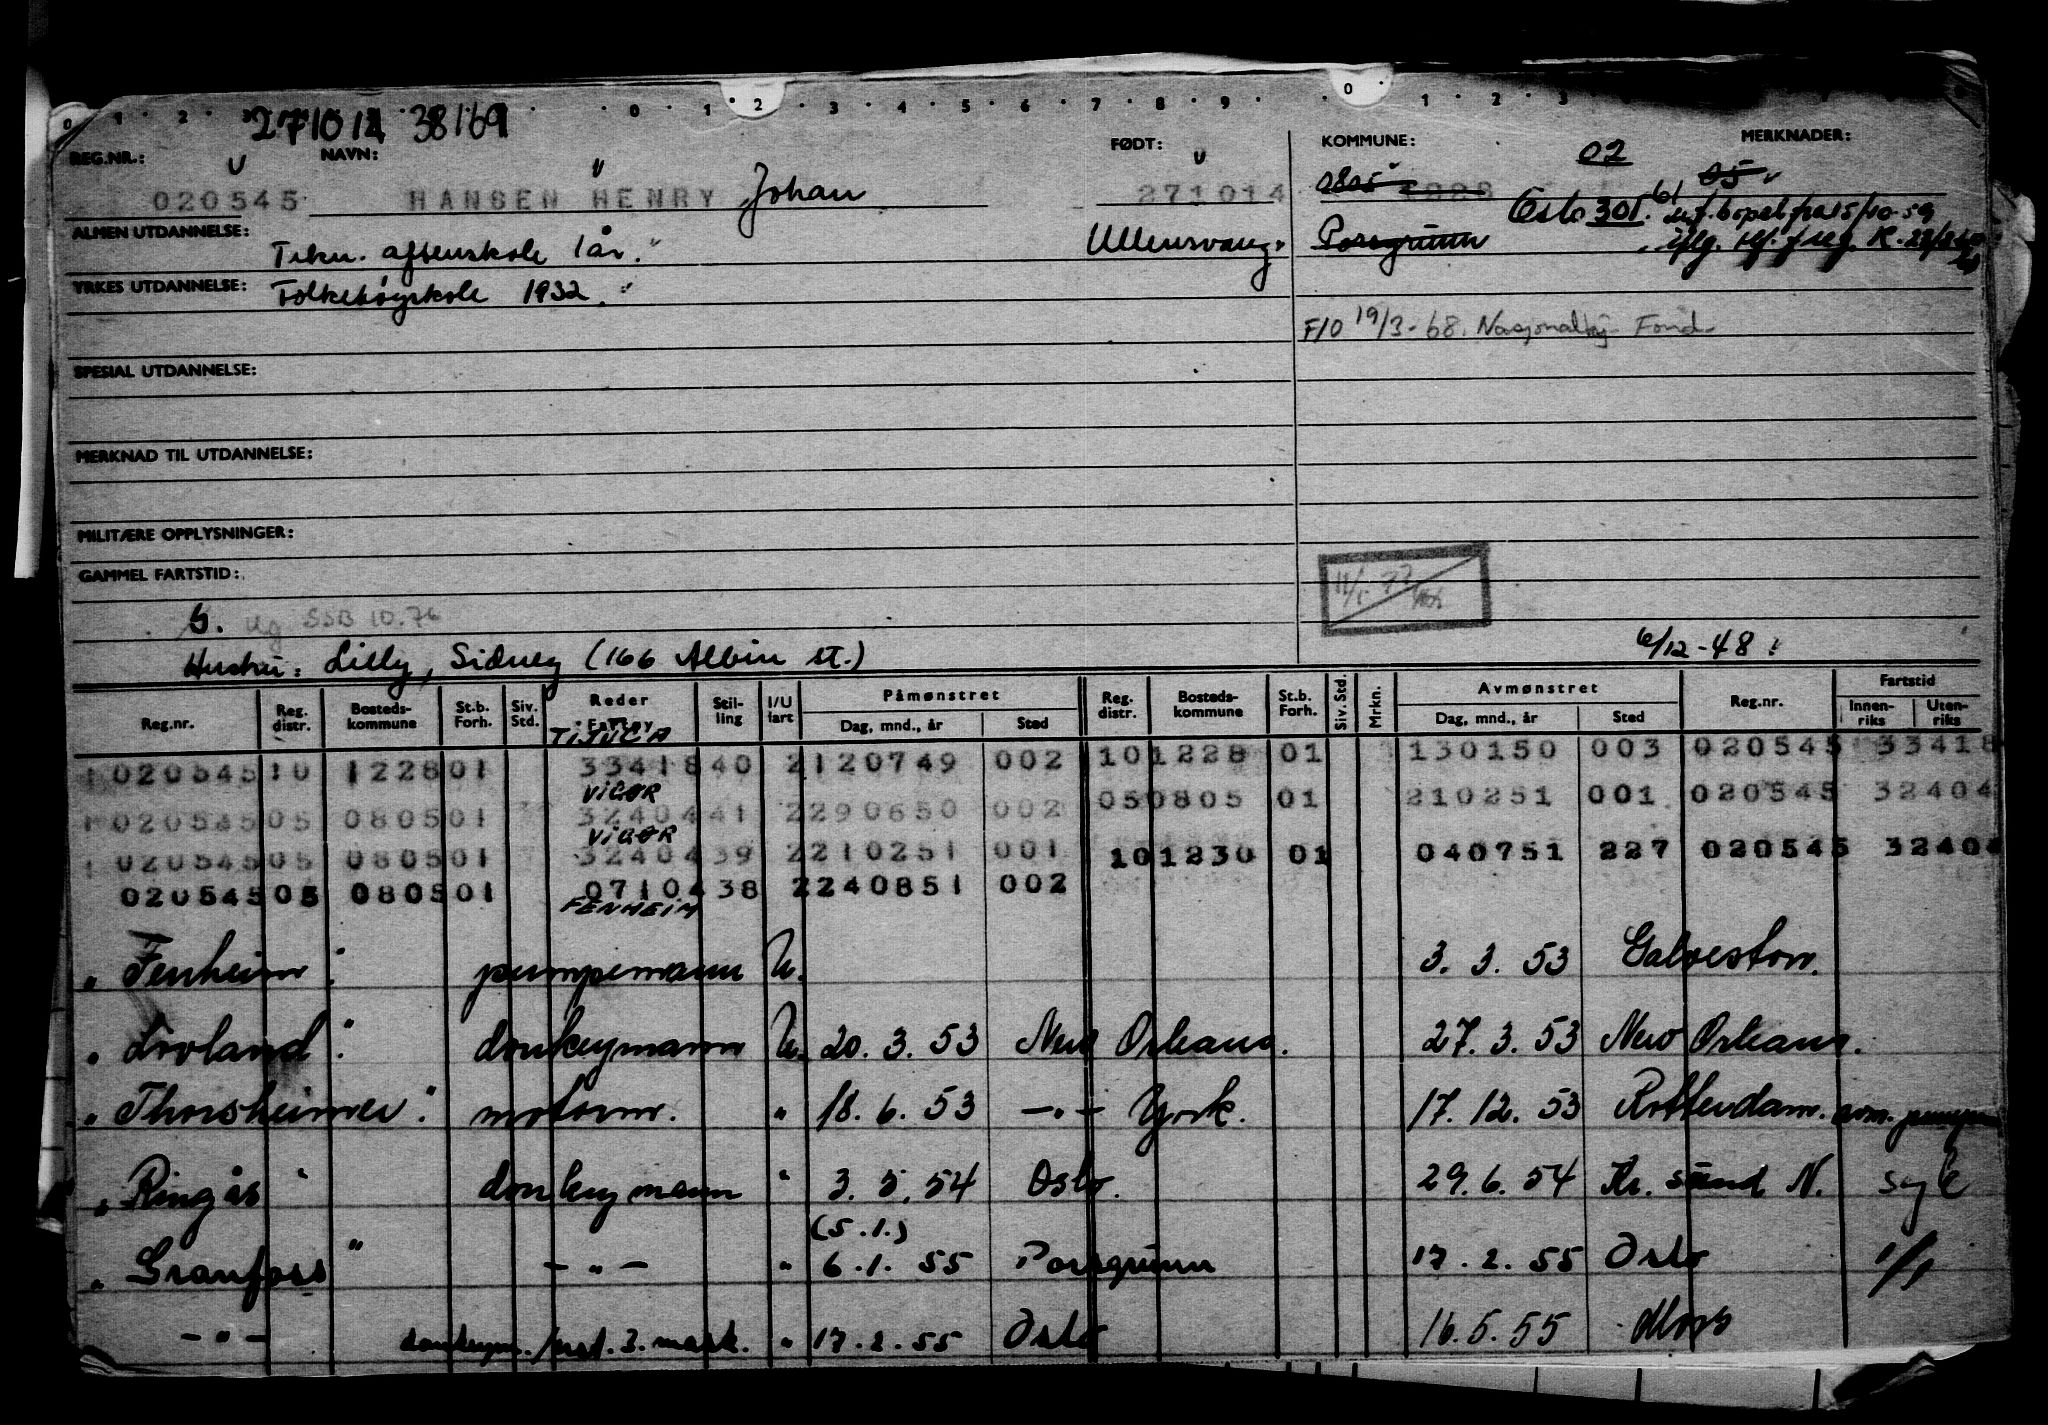 271014 38169
REG.NR.: NAVN: FØDT: KOMMUNE: 02 MERKNADER:
020545 HANSEN HENRY Johan 271014 0805 1228 05
Oslo 301.
ALMEN UTDANNELSE: Tekn. aftenskole 1 år. Ullensvang. Porsgrunn
YRKES UTDANNELSE: Folkehøyskole 1932.
F/O 19/3-68. Fond
SPESIAL UTDANNELSE:
MERKNAD TIL UTDANNELSE:
MILITÆRE OPPLYSNINGER:
GAMMEL FARTSTID:
SSB 10.76
6/12-48
Hustru: Lilly, Sidney (166 Albin st.)
Reg.nr. Reg. distr. Bosteds-kommune St.b. Forh. Siv. Std. Reder Fartøy Stil-ling I/U fart Påmønstret Dag, mnd., år Sted Reg. distr. Bosteds-kommune St.b. Forh. Siv. Std. Mrkn. Avmønstret Dag, mnd., år Sted Reg.nr. Fartstid Innen-riks Uten-riks
TIJUCA
020545 10 1228 01 33418 40 2 120749 002 10 1228 01 130150 003 020545 33418
VIGØR
020545 05 0805 01 32404 41 2 290650 002 05 0805 01 210251 001 020545 32404
VIGØR
020545 05 0805 01 32404 39 2 210251 001 10 1230 01 040751 227 020545 32404
020545 05 0805 01 07104 38 2 240851 002
FENHEIM
" Fenheim " pumpemann U. 3. 3. 53 Galveston.
" Livland " donkeymann U. 20. 3. 53 New Orleans. 27. 3. 53 New Orleans.
" Thorsheimer " motorm. " 18. 6. 53 -"- York. 17. 12. 53 Rotterdam.
" Ringås " donkeymann " 3. 5. 54 Oslo. 29. 6. 54 Kr. sund N. syk
(5.1.)
" Granfoss " -"- " 6. 1. 55 Porsgrunn 17. 2. 55 Oslo 1/1
-"- donkeym./ass. 3. mask. " 17. 2. 55 Oslo 16. 5. 55 Moss